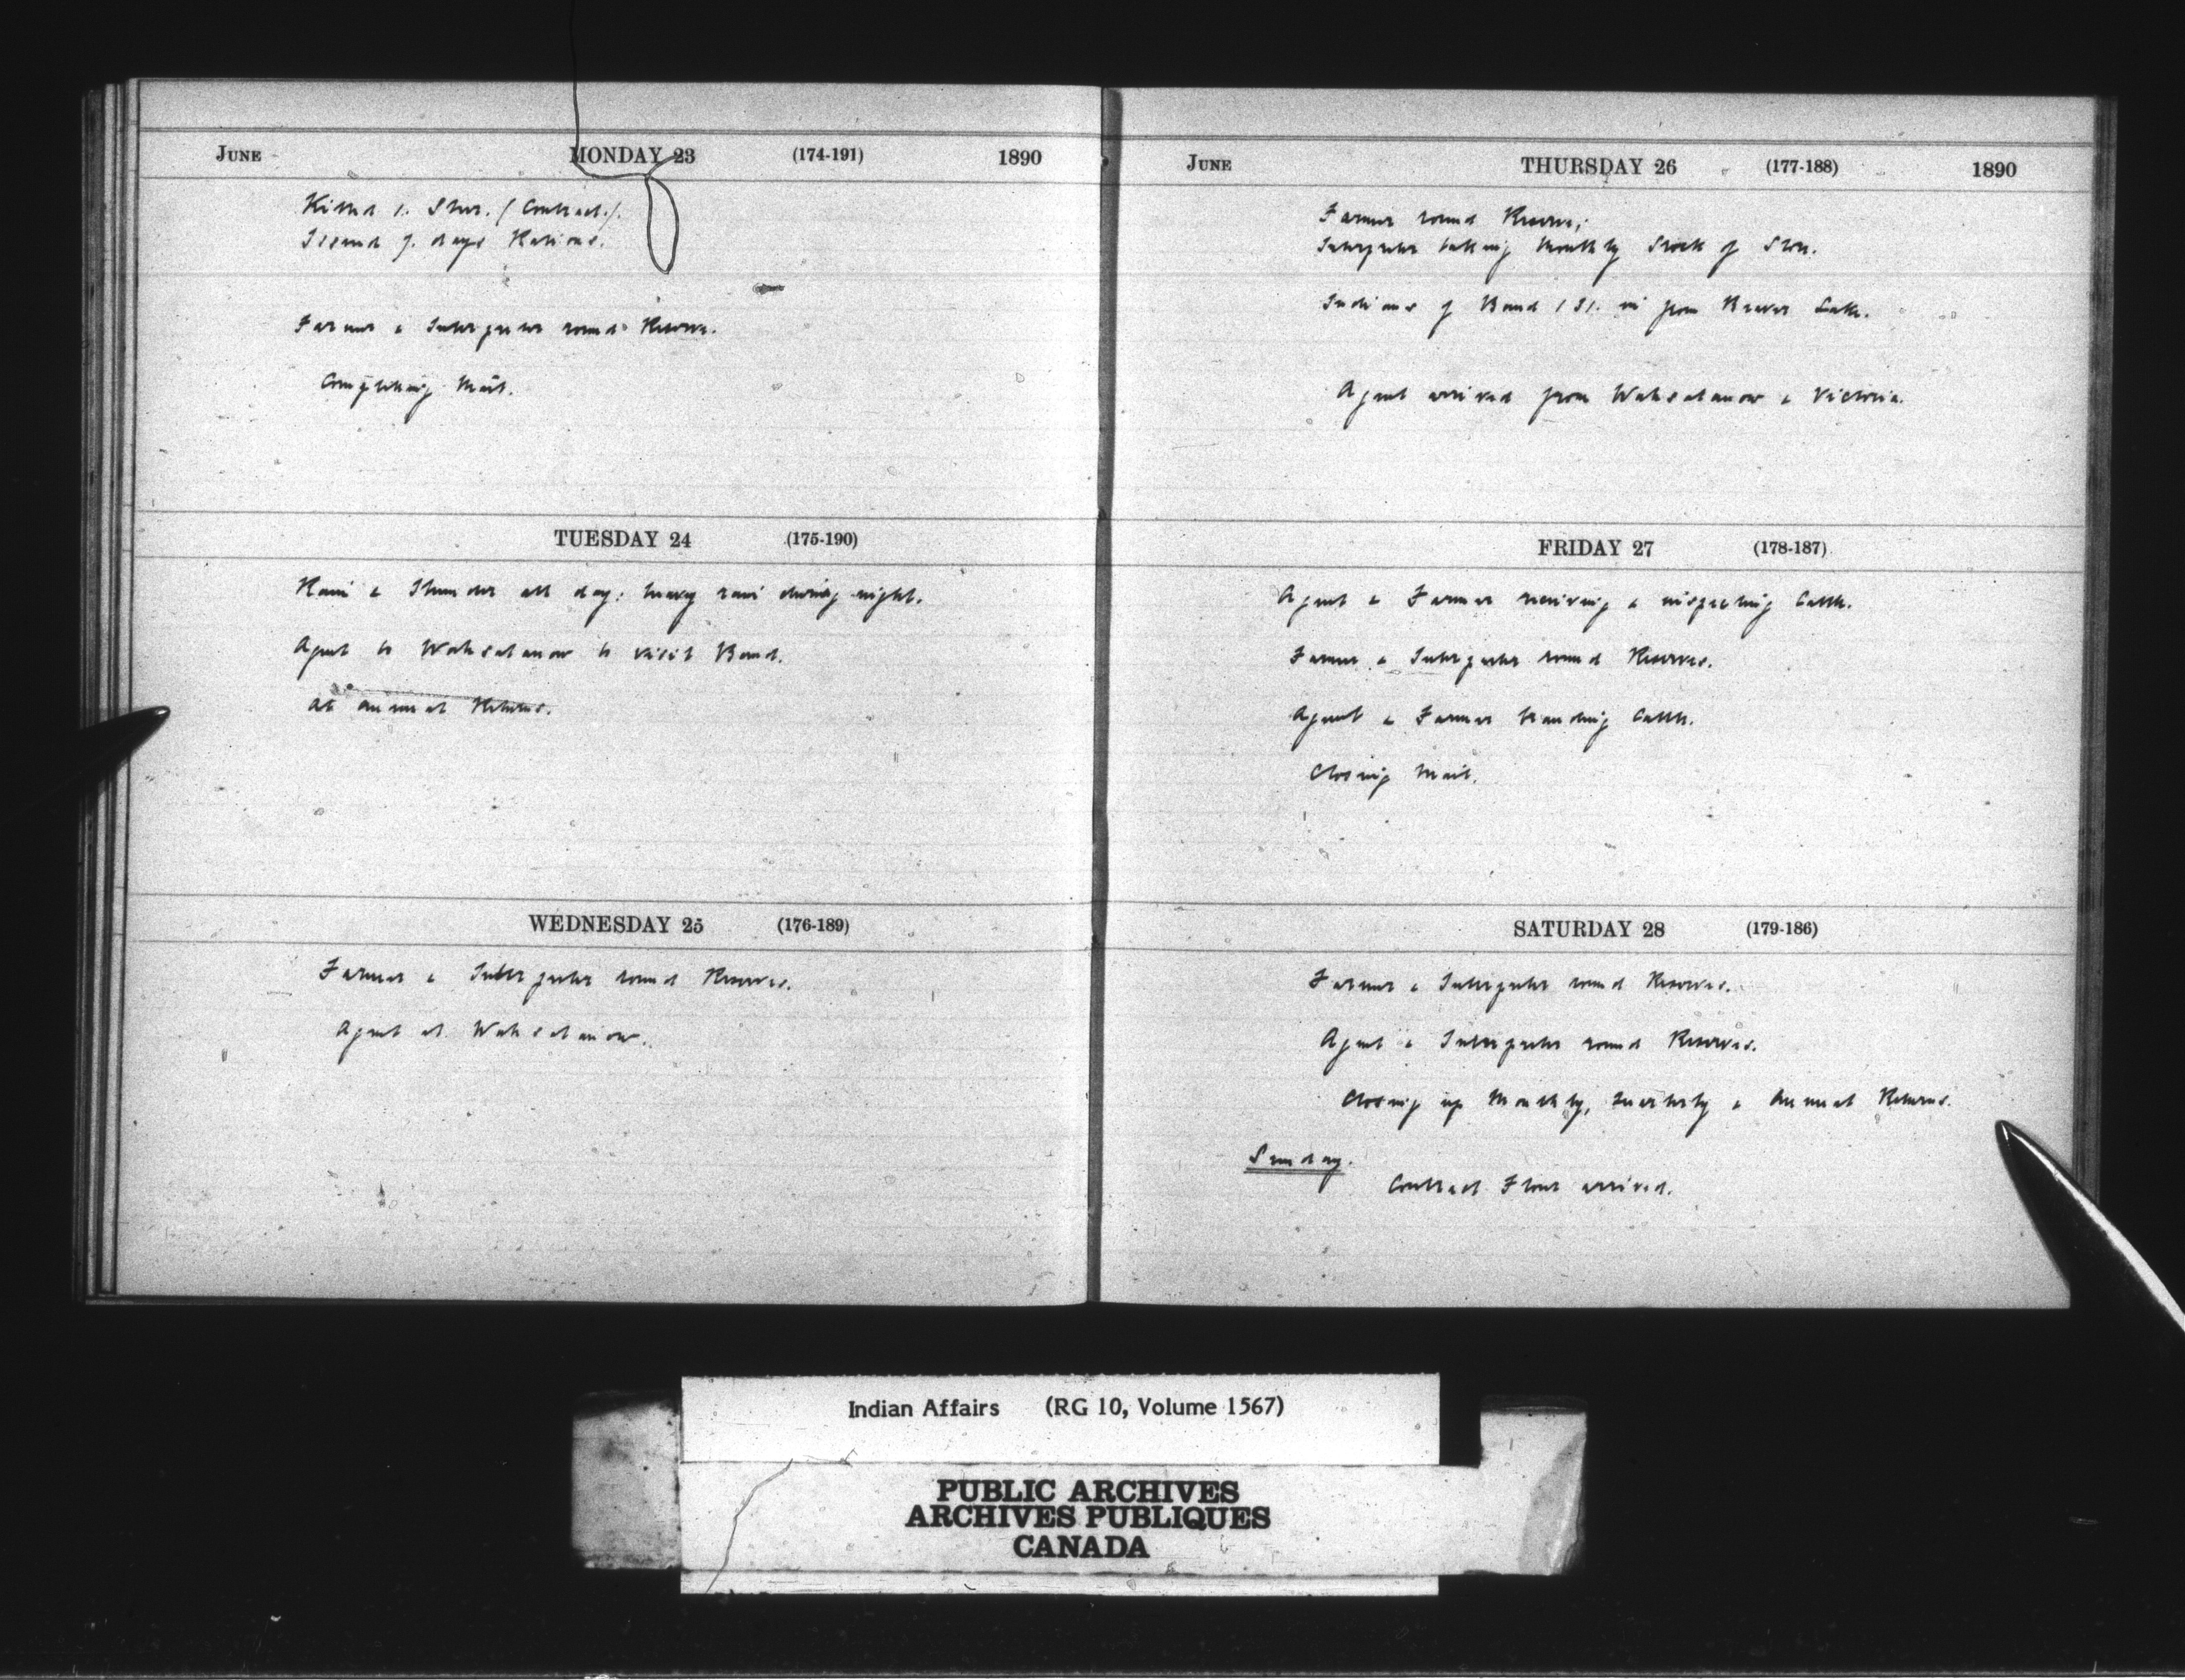 JUNE MONDAY 23 (174-191) 1890
Killed 1. Steer. (Contract.).
Issued 7. days Rations.
Farmer & Interpreter round Reserve.
Completing Mail.
TUESDAY 24 (175-190)
Rain & Thunder all day: heavy rain during night.
Agent to Wahsatanow to visit Band.
At annual Returns.
WEDNESDAY 25 (176-189)
Farmer & Interpreter round Reserves.
Agent at Wahsatanow.
JUNE THURSDAY 26 (177-188) 1890
Farmer round Reserve;
Interpreter taking Monthly Stock of Store.
Indians of Band 131. in from Beaver Lake.
Agent arrived from Wahsatanow & Victoria.
FRIDAY 27 (178-187)
Agent & Farmer receiving & inspecting Cattle.
Farmer & Interpreter round Reserves.
Agent & Farmer branding Cattle.
Closing Mail.
SATURDAY 28 (179-186)
Farmer & Interpreter round Reserves.
Agent & Interpreter round Reserves.
Closing up Monthly, Quarterly & Annual Returns.
Sunday.
Contract Flour arrived.
Indian Affairs (RG 10, Volume 1567)
PUBLIC ARCHIVES
ARCHIVES PUBLIQUES
CANADA